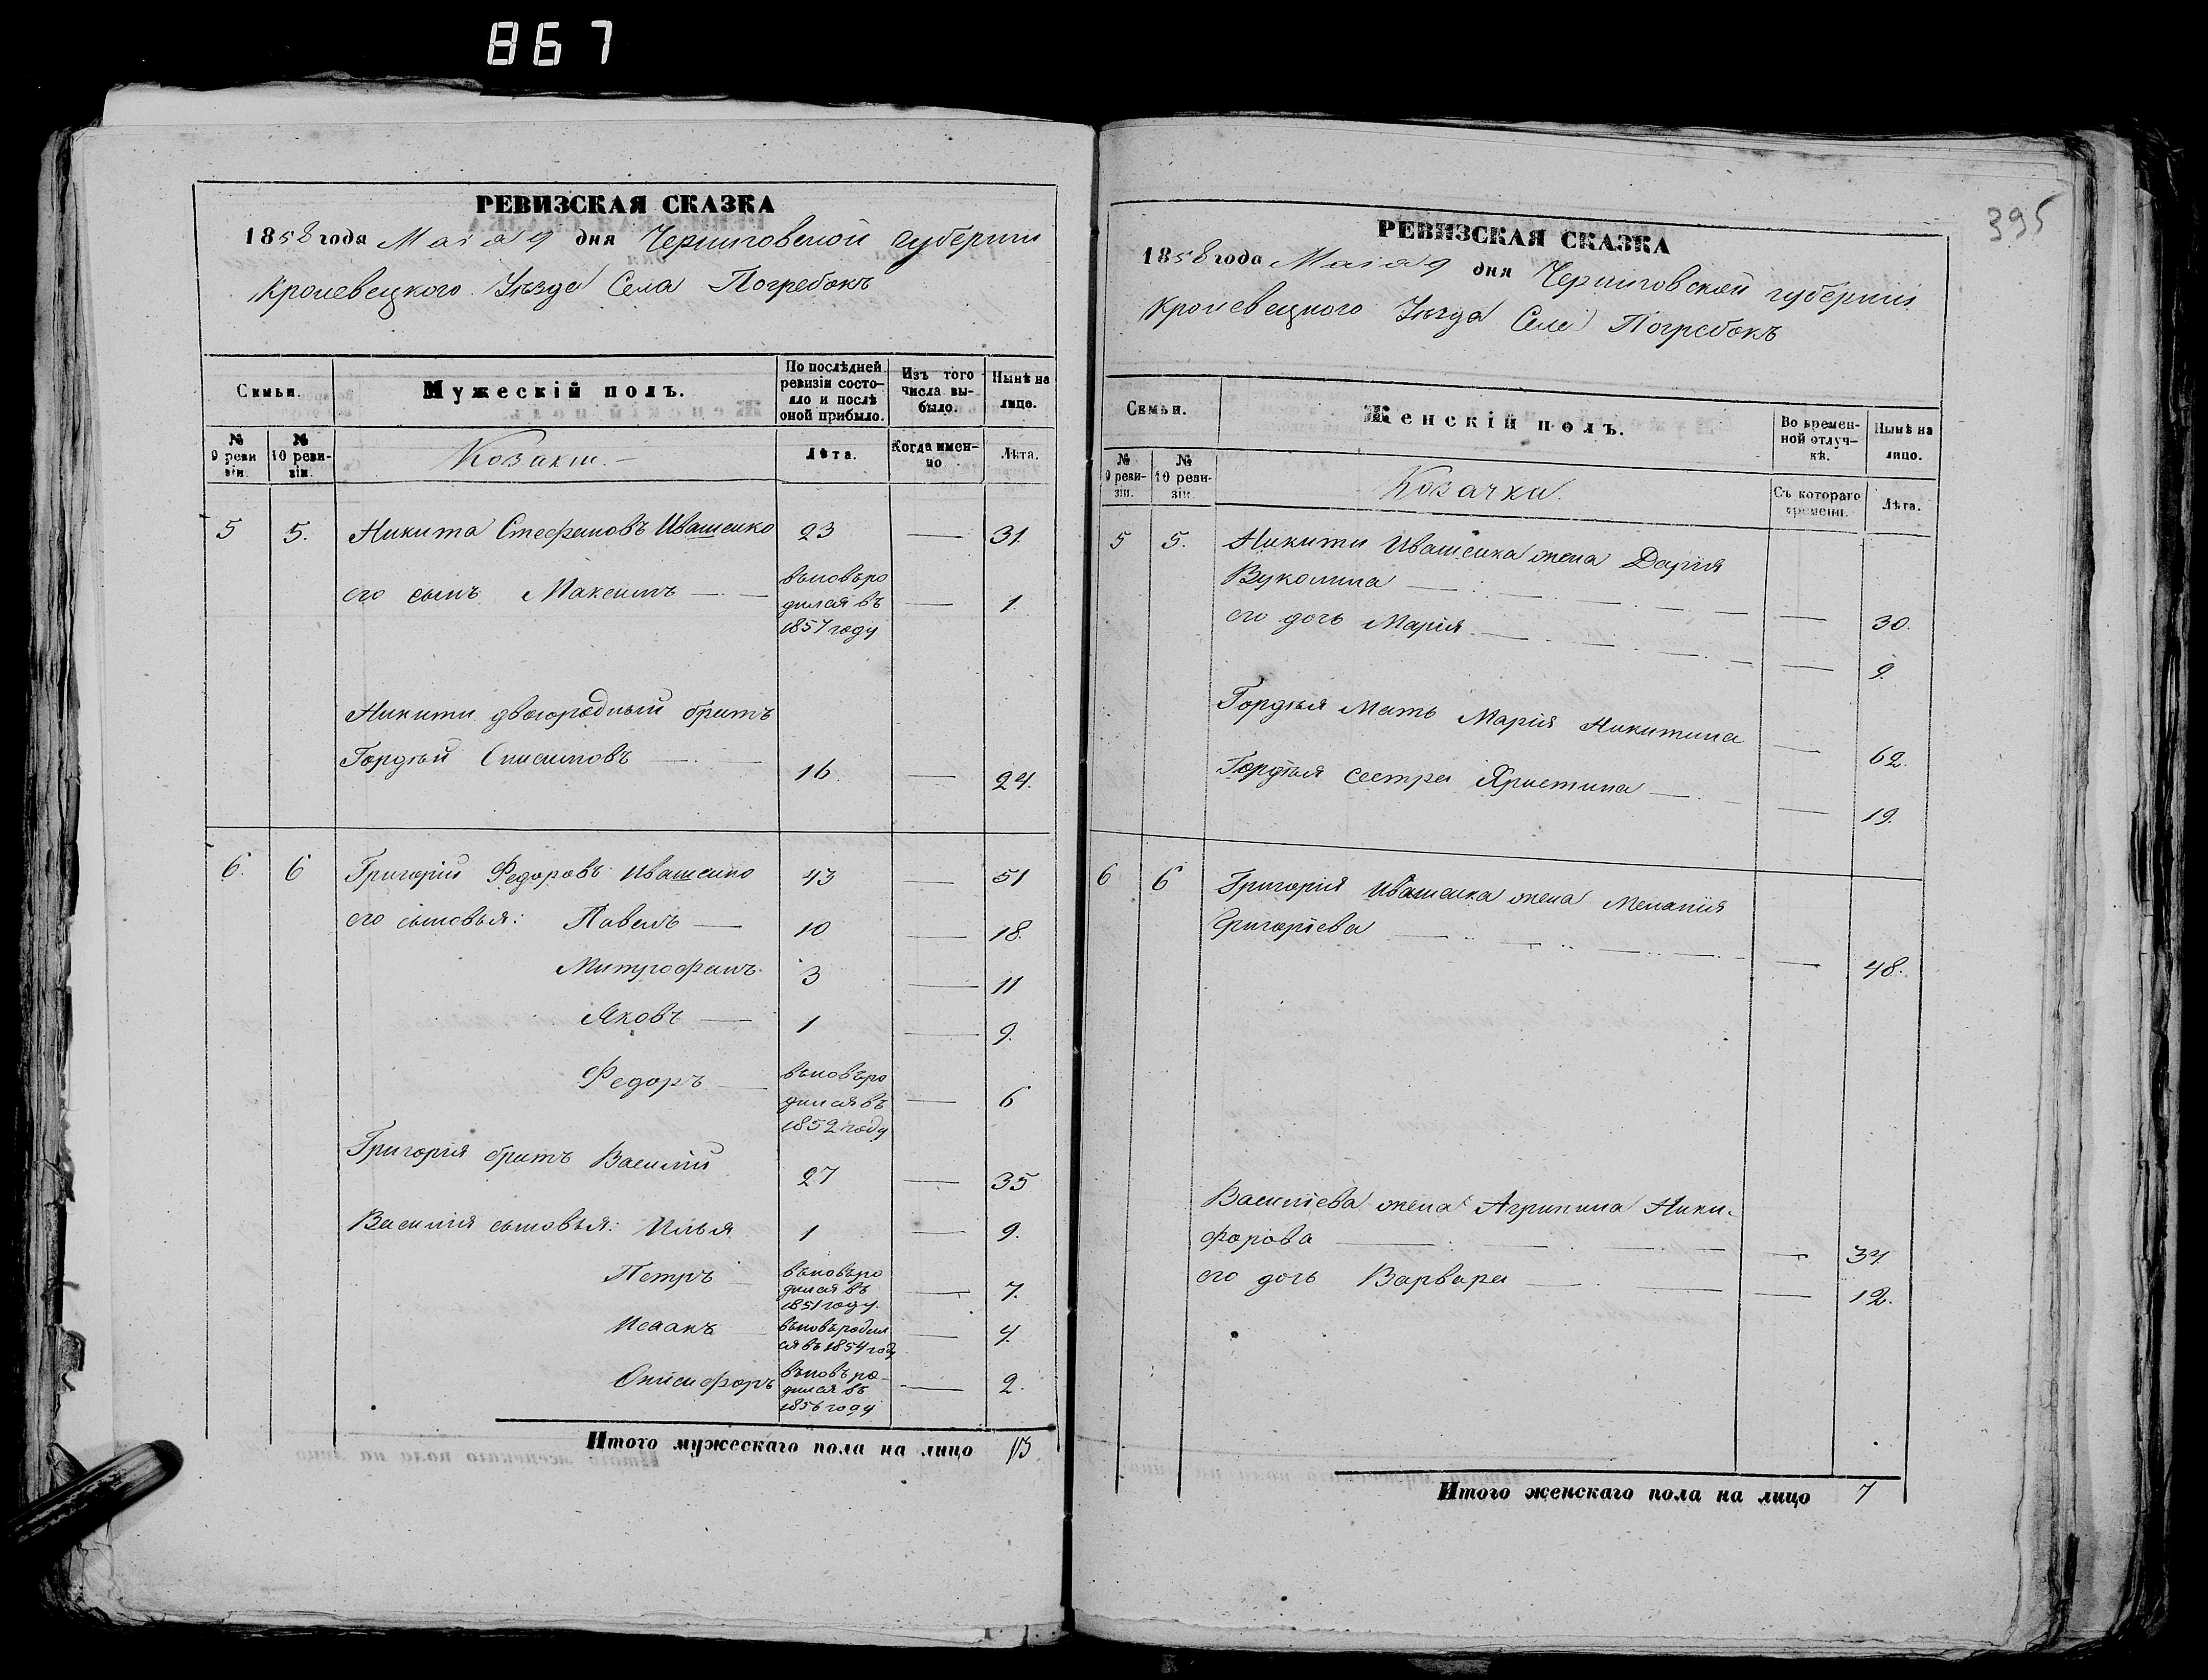 867
395
РЕВИЗСКАЯ СКАЗКА
1858 года Маія 9 дня Черниговской губерніи
Кролевецкого Уѣзда Села Погребокъ
Семьи.
Мужескій полъ.
По послѣдней ревизіи состояло и послѣ оной прибыло.
Изъ того числа выбыло.
Нынѣ на лицо.
№ 9 ревизіи.
№ 10 ревизіи.
Козаки.
Лѣта.
Когда именно
Лѣта.
5 5. Никита Стефановъ Ивашенко 23 — 31.
его сынъ Максимъ — вновь родился въ 1857 году — 1.
Никиты двоюродный братъ
Гордѣй Онисимовъ — 16. — 24.
6. 6 Григорій Федоровъ Ивашенко 43 — 51
его сыновья: Павелъ — 10 — 18.
Митрофанъ 3 — 11
Яковъ — 1 — 9.
Федоръ — вновь родился въ 1852 году — 6
Григорія братъ Василій 27 — 35
Василія сыновья: Илья 1 — 9.
Петръ — вновь родился въ 1851 году. — 7.
Исаакъ — вновь родился въ 1854 году — 4.
Онисифоръ вновь родился въ 1856 году — 2.
Итого мужескаго пола на лицо 13
РЕВИЗСКАЯ СКАЗКА
1858 года Маія 9 дня Черниговской губерніи
Кролевецкого Уѣзда Села Погребокъ
Семьи.
Женскій полъ.
Во временной отлучкѣ.
Нынѣ на лицо.
№ 9 ревизіи.
№ 10 ревизіи.
Козачки.
Съ котораго времени.
Лѣта.
5 5. Никиты Ивашенка жена Дарія
Вуколина — 30.
его дочь Марія — 9.
Гордѣя Мать Марія Никитина — 62.
Гордѣя сестра Христина — 19.
6 6 Григорія Ивашенка жена Меланія
Григоріева — 48.
Василіева жена Агрипина Ники-
форова — 34.
его дочь Варвара — 12.
Итого женскаго пола на лицо 7